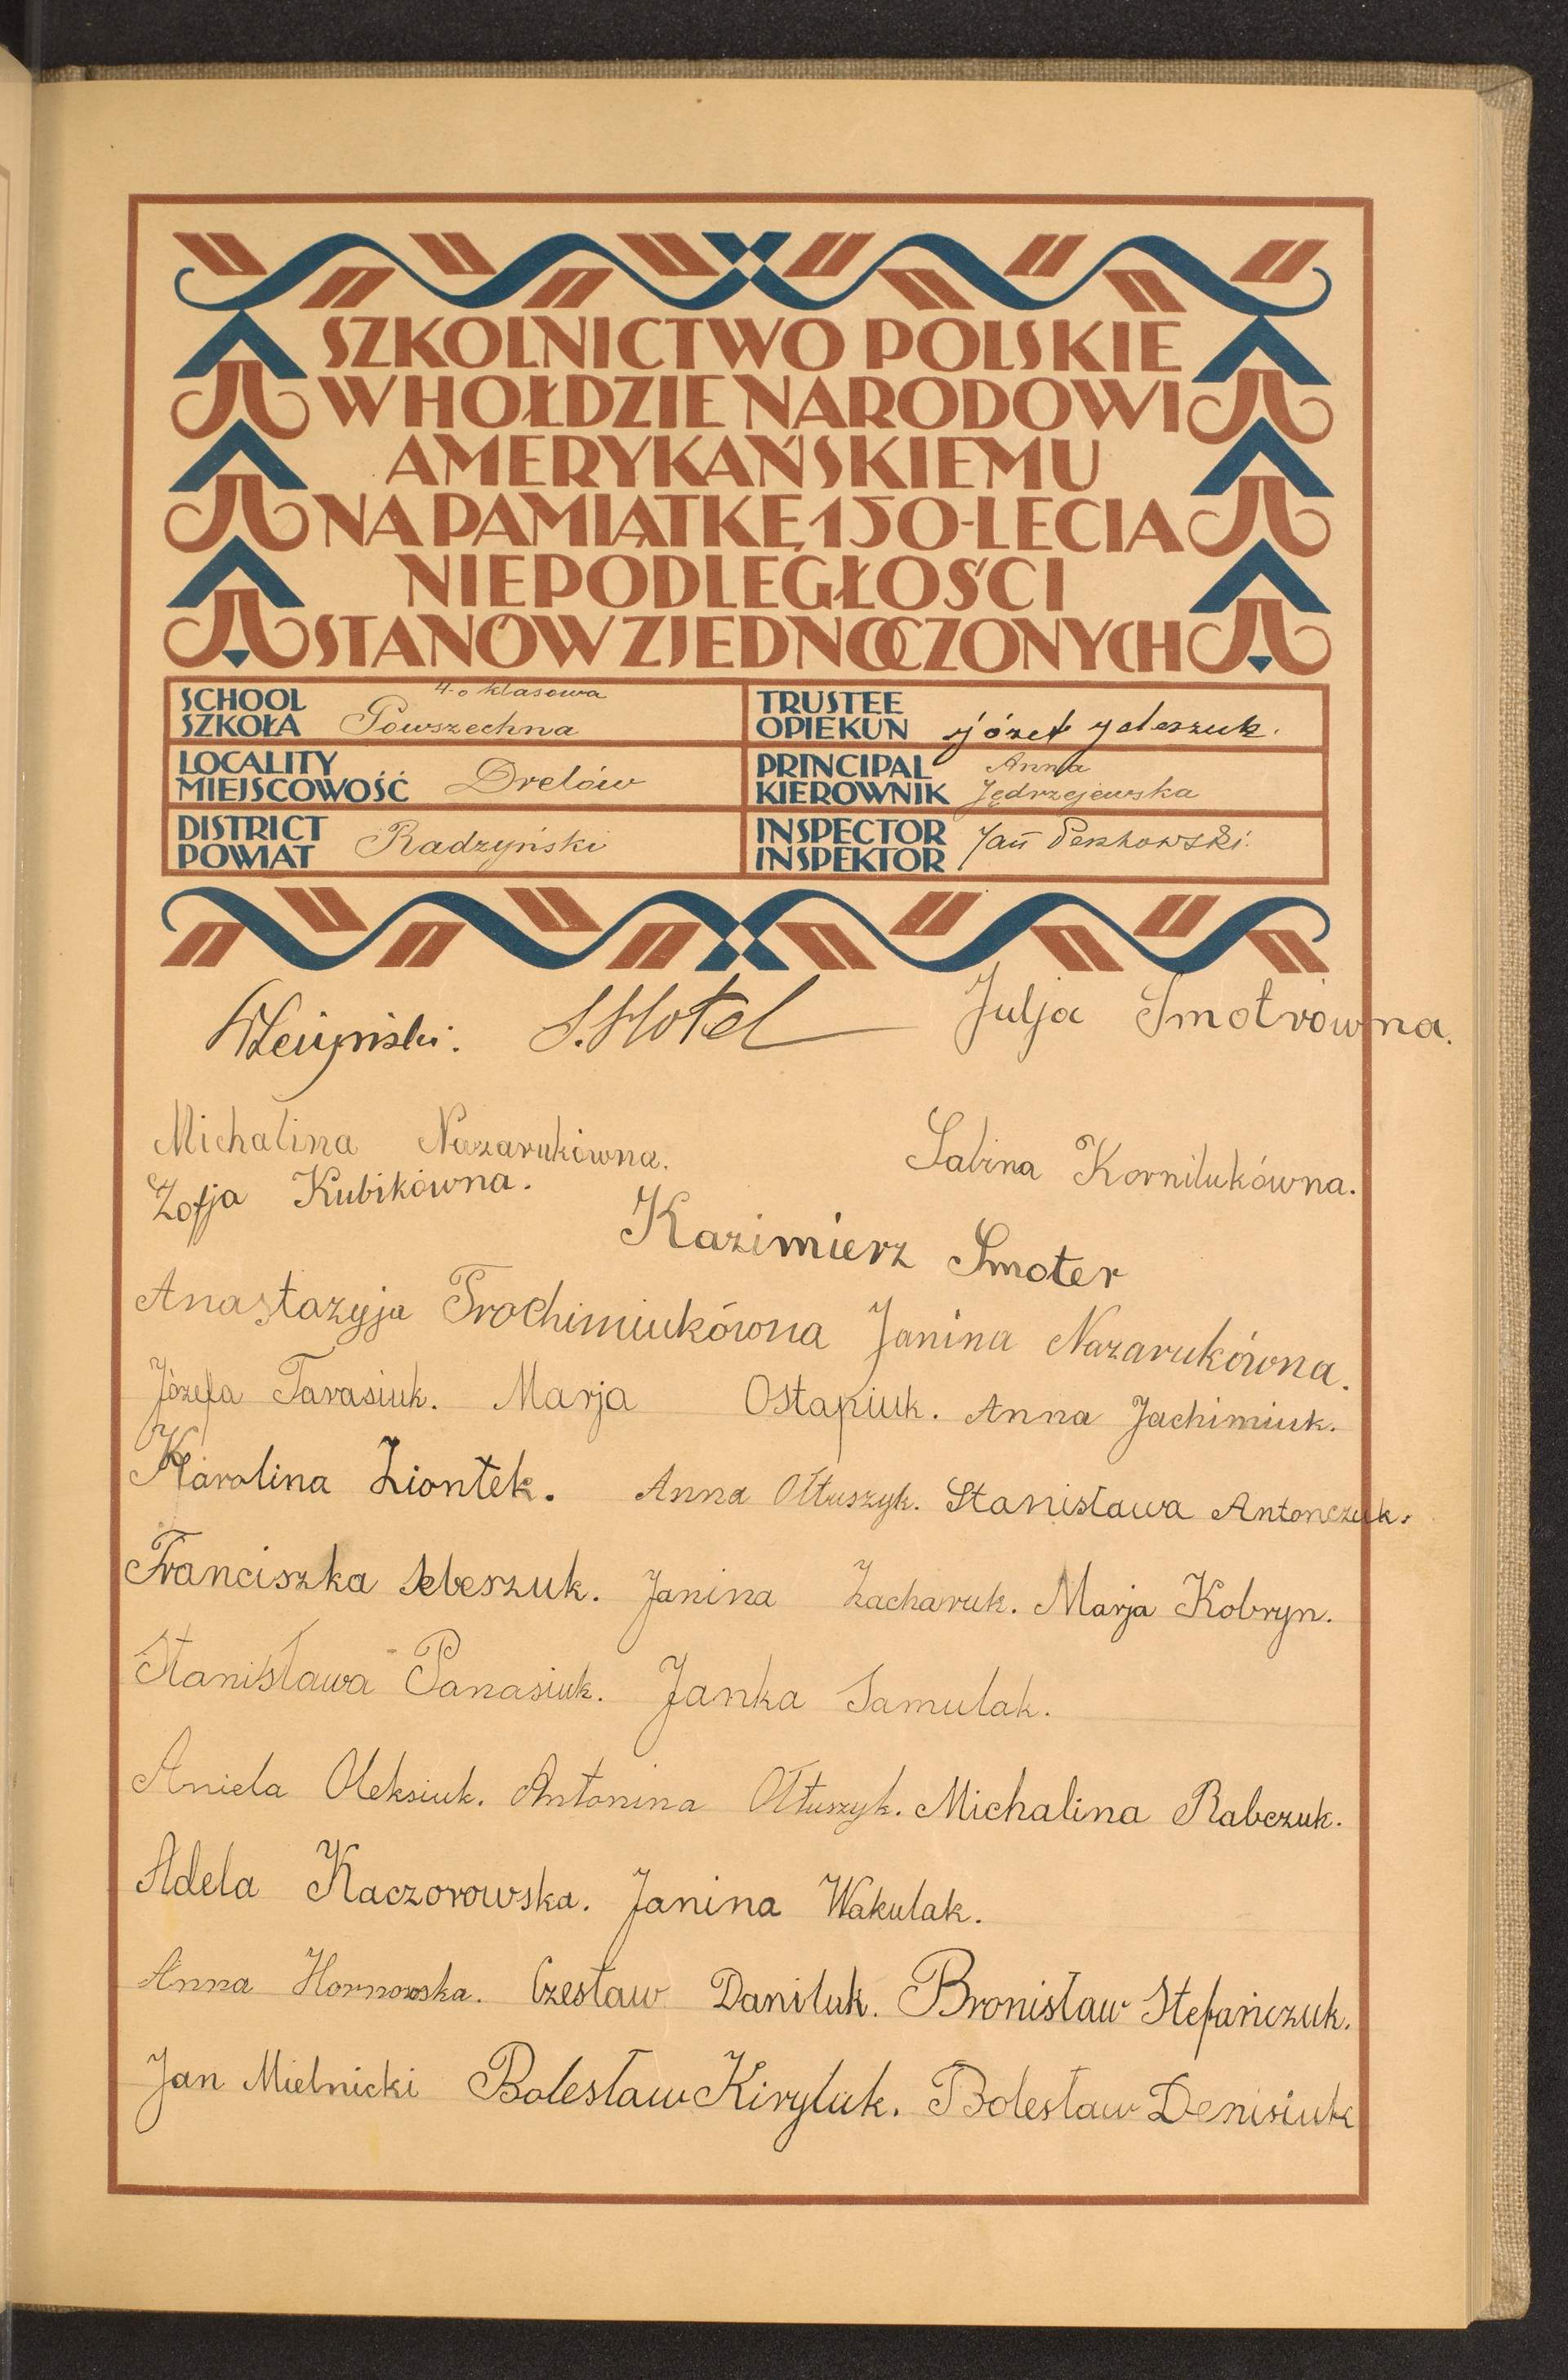 SZKOLNICTWO POLSKIE
W HOŁDZIE NARODOWI
AMERYKAŃSKIEMU
NA PAMIĄTKĘ 150-LECIA
NIEPODLEGŁOŚCI
STANÓW ZJEDNOCZONYCH
SCHOOL 4-o klasowa
SZKOŁA Powszechna
TRUSTEE
OPIEKUN Józef
LOCALITY
MIEJSCOWOŚĆ Drelów
PRINCIPAL Anna
KIEROWNIK Jędrzejewska
DISTRICT
POWIAT Radzyński
INSPECTOR
INSPEKTOR Jan
Julja Smotrówna.
Michalina Nazarukówna.
Sabina Kornilukówna.
Zofja Kubikówna.
Kazimierz Smoter
Anastazyja Trochimiukówna Janina Nazarukówna.
Józefa Tarasiuk. Marja Ostapiuk. Anna Jachimiuk.
Karolina Ziontek. Anna Ołtuszyk. Stanisława Antonczuk.
Franciszka Lebeszuk. Janina Zacharuk. Marja Kobryn.
Stanisława Panasiuk. Janka Samulak.
Aniela Oleksiuk. Antonina Ołtuszyk. Michalina Rabczuk.
Adela Kaczorowska. Janina Wakulak.
Anna Hornowska. Czesław Daniluk. Bronisław Stefańczuk.
Jan Mielnicki Bolesław Kiryluk. Bolesław Denisiuk